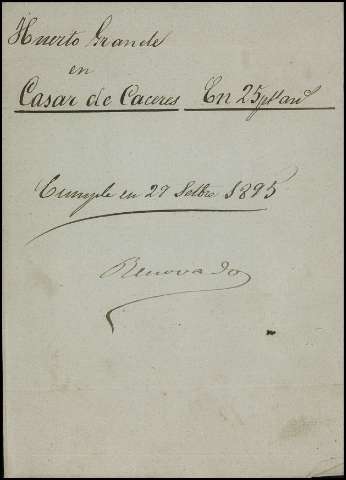 Huerto Grande
en
Casar de Caceres En 25
Cumple en 29 Setbre 1895
Renovado